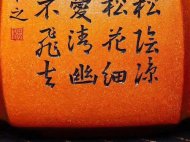 松陰涼
松花細
愛清幽
不飛去
之